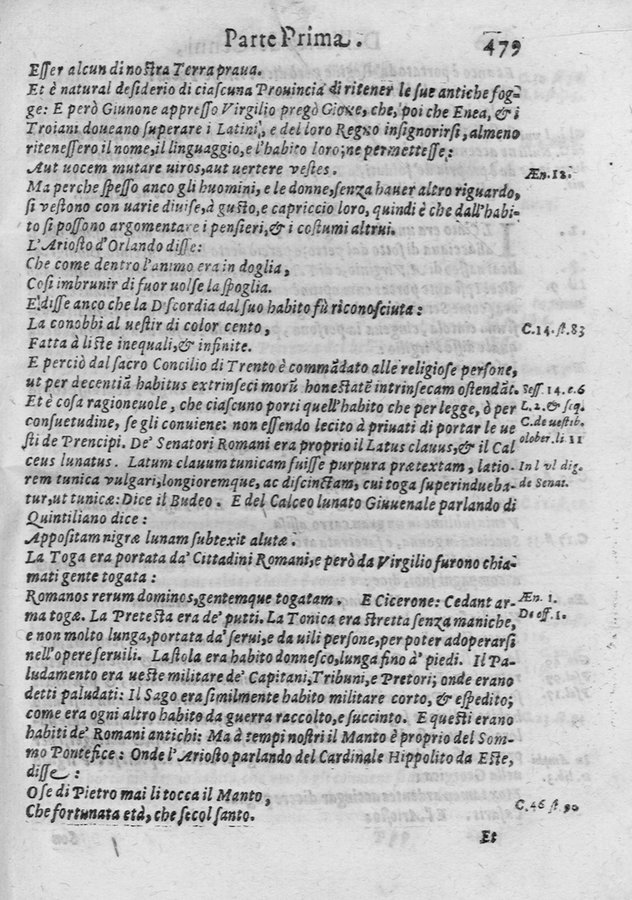 Parte Prima. 479
Esser alcun di nostra Terra praua.
Et è natural desiderio di ciascuna Prouincia di ritener le sue antiche fog-
ge: E però Giunone appresso Virgilio pregò Gioue, che, poi che Enea, & i
Troiani doueano superare i Latini, e del loro Regno insignorirsi, almeno
ritenessero il nome, il linguaggio, e l'habito loro; ne permettesse:
Aut uocem mutare uiros, aut uertere vestes. Æn. 12.
Ma perche spesso anco gli huomini, e le donne, senza hauer altro riguardo,
si vestono con uarie diuise, à gusto, e capriccio loro, quindi è che dall'habi-
to si possono argomentare i pensieri, & i costumi altrui.
L'Ariosto d'Orlando disse:
Che come dentro l'animo era in doglia,
Così imbrunir di fuor uolse la spoglia.
E disse anco che la Discordia dal suo habito fù riconosciuta:
La conobbi al uestir di color cento, C. 14. st. 83
Fatta à liste inequali, & infinite.
E perciò dal sacro Concilio di Trento è commãdato alle religiose persone,
ut per decentiã habitus extrinseci morũ honestatẽ intrinsecam ostendãt. Sess. 14. c. 6
Et è cosa ragioneuole, che ciascuno porti quell'habito che per legge, ò per L. 2. & seq.
consuetudine, se gli conuiene: non essendo lecito à priuati di portar le ue C. de uestib.
sti de Prencipi. De' Senatori Romani era proprio il Latus clauus, & il Cal olober. li. 11
ceus lunatus. Latum clauum tunicam fuisse purpura prætextam, latio- In l vl dig.
rem tunica vulgari, longioremque, ac discinctam, cui toga superindueba- de Senat.
tur, ut tunicæ: Dice il Budeo. E del Calceo lunato Giuuenale parlando di
Quintiliano dice:
Appositam nigræ lunam subtexit alutæ.
La Toga era portata da' Cittadini Romani, e però da Virgilio furono chia-
mati gente togata:
Romanos rerum dominos, gentemque togatam. E Cicerone: Cedant ar- Æn. 1.
ma togæ. La Pretesta era de' putti. La Tonica era stretta senza maniche, De off. 1.
e non molto lunga, portata da' serui, e da uili persone, per poter adoperarsi
nell'opere seruili. La stola era habito donnesco, lunga fino à' piedi. Il Pa-
ludamento era ueste militare de' Capitani, Tribuni, e Pretori; onde erano
detti paludati: Il Sago era similmente habito militare corto, & espedito;
come era ogni altro habito da guerra raccolto, e succinto. E questi erano
habiti de' Romani antichi: Ma à tempi nostri il Manto è proprio del Som-
mo Pontefice: Onde l'Ariosto parlando del Cardinale Hippolito da Este,
disse:
O se di Pietro mai li tocca il Manto, C. 46 st 90
Che fortunata età, che secol santo.
Et